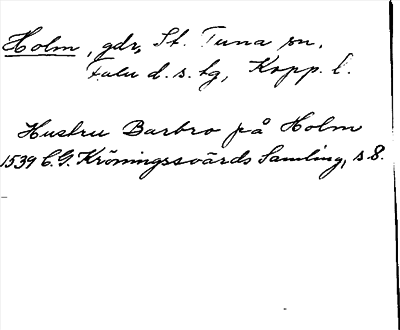 Holm, gdr, St. Tuna sn.
Falu d. s. tg, Kopp. l.
Hustru Barbro på Holm
1539 C. G. Kröningssvärds Samling, s 8.